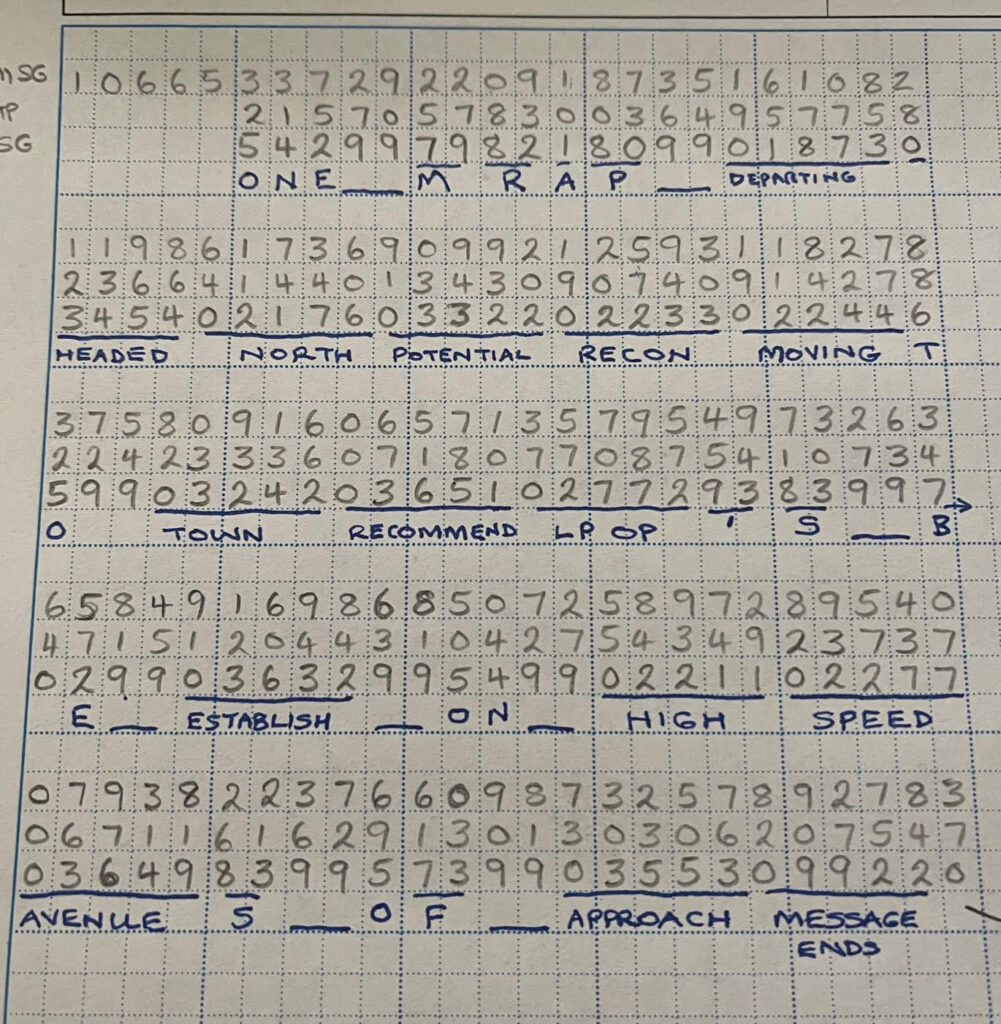 MSG 10665 33729 22091 87351 61082
TP 21570 57830 03649 57758
SG 54299 79821 80990 18730
ONE __ M R A P __ DEPARTING
11986 17369 09921 25931 18278
23664 14401 34309 07409 14278
34540 21760 33220 22330 22446
HEADED NORTH POTENTIAL RECON MOVING T
37580 91606 57135 79549 73263
22423 33607 18077 08754 10734
59903 24203 65102 77293 83997
O TOWN RECOMMEND LP OP ' S __ B
65849 16986 85072 58972 89540
47151 20443 10427 54349 23737
02990 36329 95499 02211 02277
E __ ESTABLISH __ O N __ HIGH SPEED
07938 22376 60987 32578 92783
06711 61629 13013 03062 07547
03649 83995 73990 35530 99220
AVENUE S __ O F __ APPROACH MESSAGE
ENDS